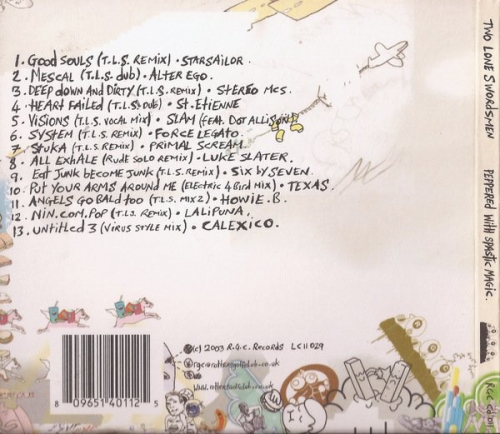 1. Good Souls (T.L.S. Remix) · Starsailor.
2. Mescal (T.L.S. dub) · Alter Ego.
3. Deep down and Dirty (T.L.S. Remix) · Stereo Mcs.
4. Heart Failed (T.L.S. Dub) · St. Etienne
5. Visions (T.L.S. vocal mix) · Slam (feat. Dot Allison)
6. System (T.L.S. Remix) · Force Legato.
7. Stuka (T.L.S. Remix) · Primal Scream.
8. All Exhale (Rude Solo Remix) · Luke Slater.
9. Eat Junk become Junk (T.L.S. Remix) · Six by Seven.
10. Put Your Arms Around Me (Electric 4 Bird Mix) · Texas.
11. Angels Go Bald Too (T.L.S. Mix 2) · Howie.B.
12. Nin.com.pop (T.L.S. Remix) · Lali Puna.
13. Untitled 3 (Virus Style Mix) · Calexico.
(c) 2003 R.G.C. Records LC11029
8 09651 40112 5
Two Lone Swordsmen
Peppered with Spastic Magic.